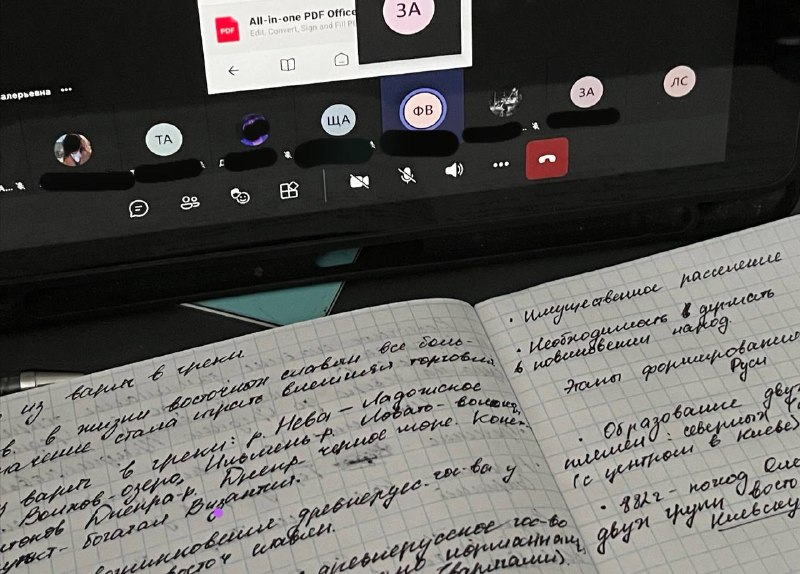 ЗА
All-in-one PDF Office
Edit, Convert, Sign and Fill
PDF
алерьевна
ТА
ЩА
ФВ
ЗА
ЛС
из варяг в греки
в. в жизни восточных славян все боль-
стала играть внешняя торговля
из варяг в греки: р. Нева - Ладожское
Волхов - озеро Ильмень - р. Ловать - волоки,
Днепра - р. Днепр черное море. Конеч-
пункт - богатая Византия.
древнерус. гос-ва у
восточ славян.
древнерусское гос-во
норманнами,
(варягами).
• Имущественное расслоение
• Необходимость держать
в повиновении народ.
Этапы формирования
Руси
• Образование двух
племен: северных
(с центром в Киеве)
• 882г - поход
двух групп
Киевскую